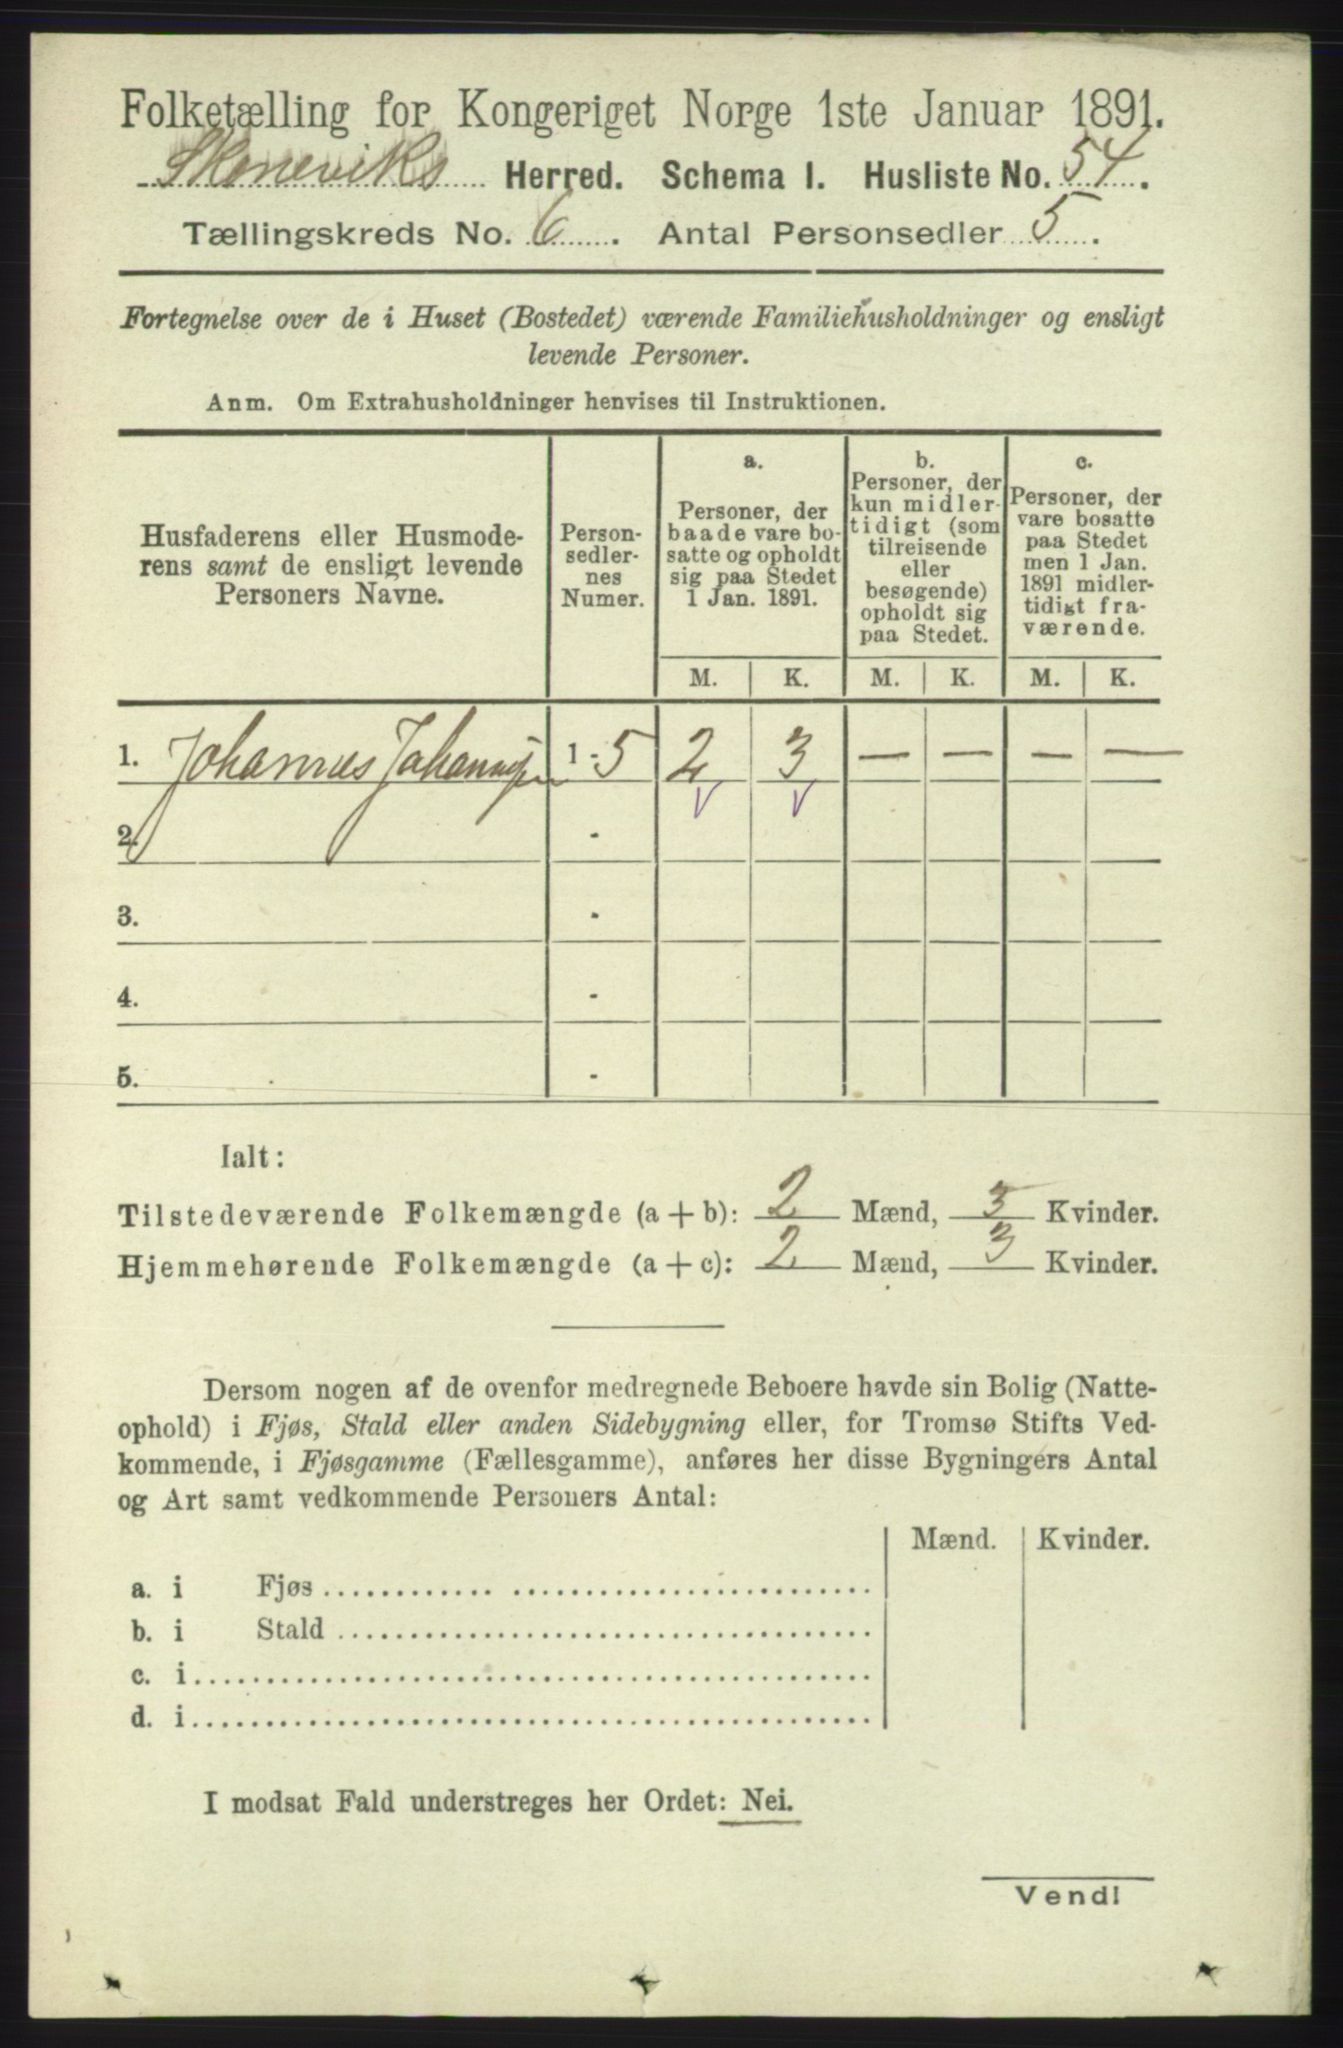 Folketælling for Kongeriget Norge 1ste Januar 1891.
Skoneviks Herred. Schema I. Husliste No. 54.
Tællingskreds No. 6. Antal Personsedler 5.
Fortegnelse over de i Huset (Bostedet) værende Familiehusholdninger og ensligt
levende Personer.
Anm. Om Extrahusholdninger henvises til Instruktionen.
Husfaderens eller Husmode-
rens samt de ensligt levende
Personers Navne.
Person-
sedler-
nes
Numer.
a.
Personer, der
baade vare bo-
satte og opholdt
sig paa Stedet
1 Jan. 1891.
b.
Personer, der
kun midler-
tidigt (som
tilreisende
eller
besøgende)
opholdt sig
paa Stedet.
c.
Personer, der
vare bosatte
paa Stedet
men 1 Jan.
1891 midler-
tidigt fra-
værende.
M. K. M. K. M. K.
1. Johannes 1-5 2 3 — — — —
2. -
3. -
4. -
5. -
Ialt:
Tilstedeværende Folkemængde (a + b): 2 Mænd, 3 Kvinder.
Hjemmehørende Folkemængde (a + c): 2 Mænd, 3 Kvinder.
Dersom nogen af de ovenfor medregnede Beboere havde sin Bolig (Natte-
ophold) i Fjøs, Stald eller anden Sidebygning eller, for Tromsø Stifts Ved-
kommende, i Fjøsgamme (Fællesgamme), anføres her disse Bygningers Antal
og Art samt vedkommende Personers Antal:
Mænd. Kvinder.
a. i Fjøs
b. i Stald
c. i
d. i
I modsat Fald understreges her Ordet: Nei.
Vend!